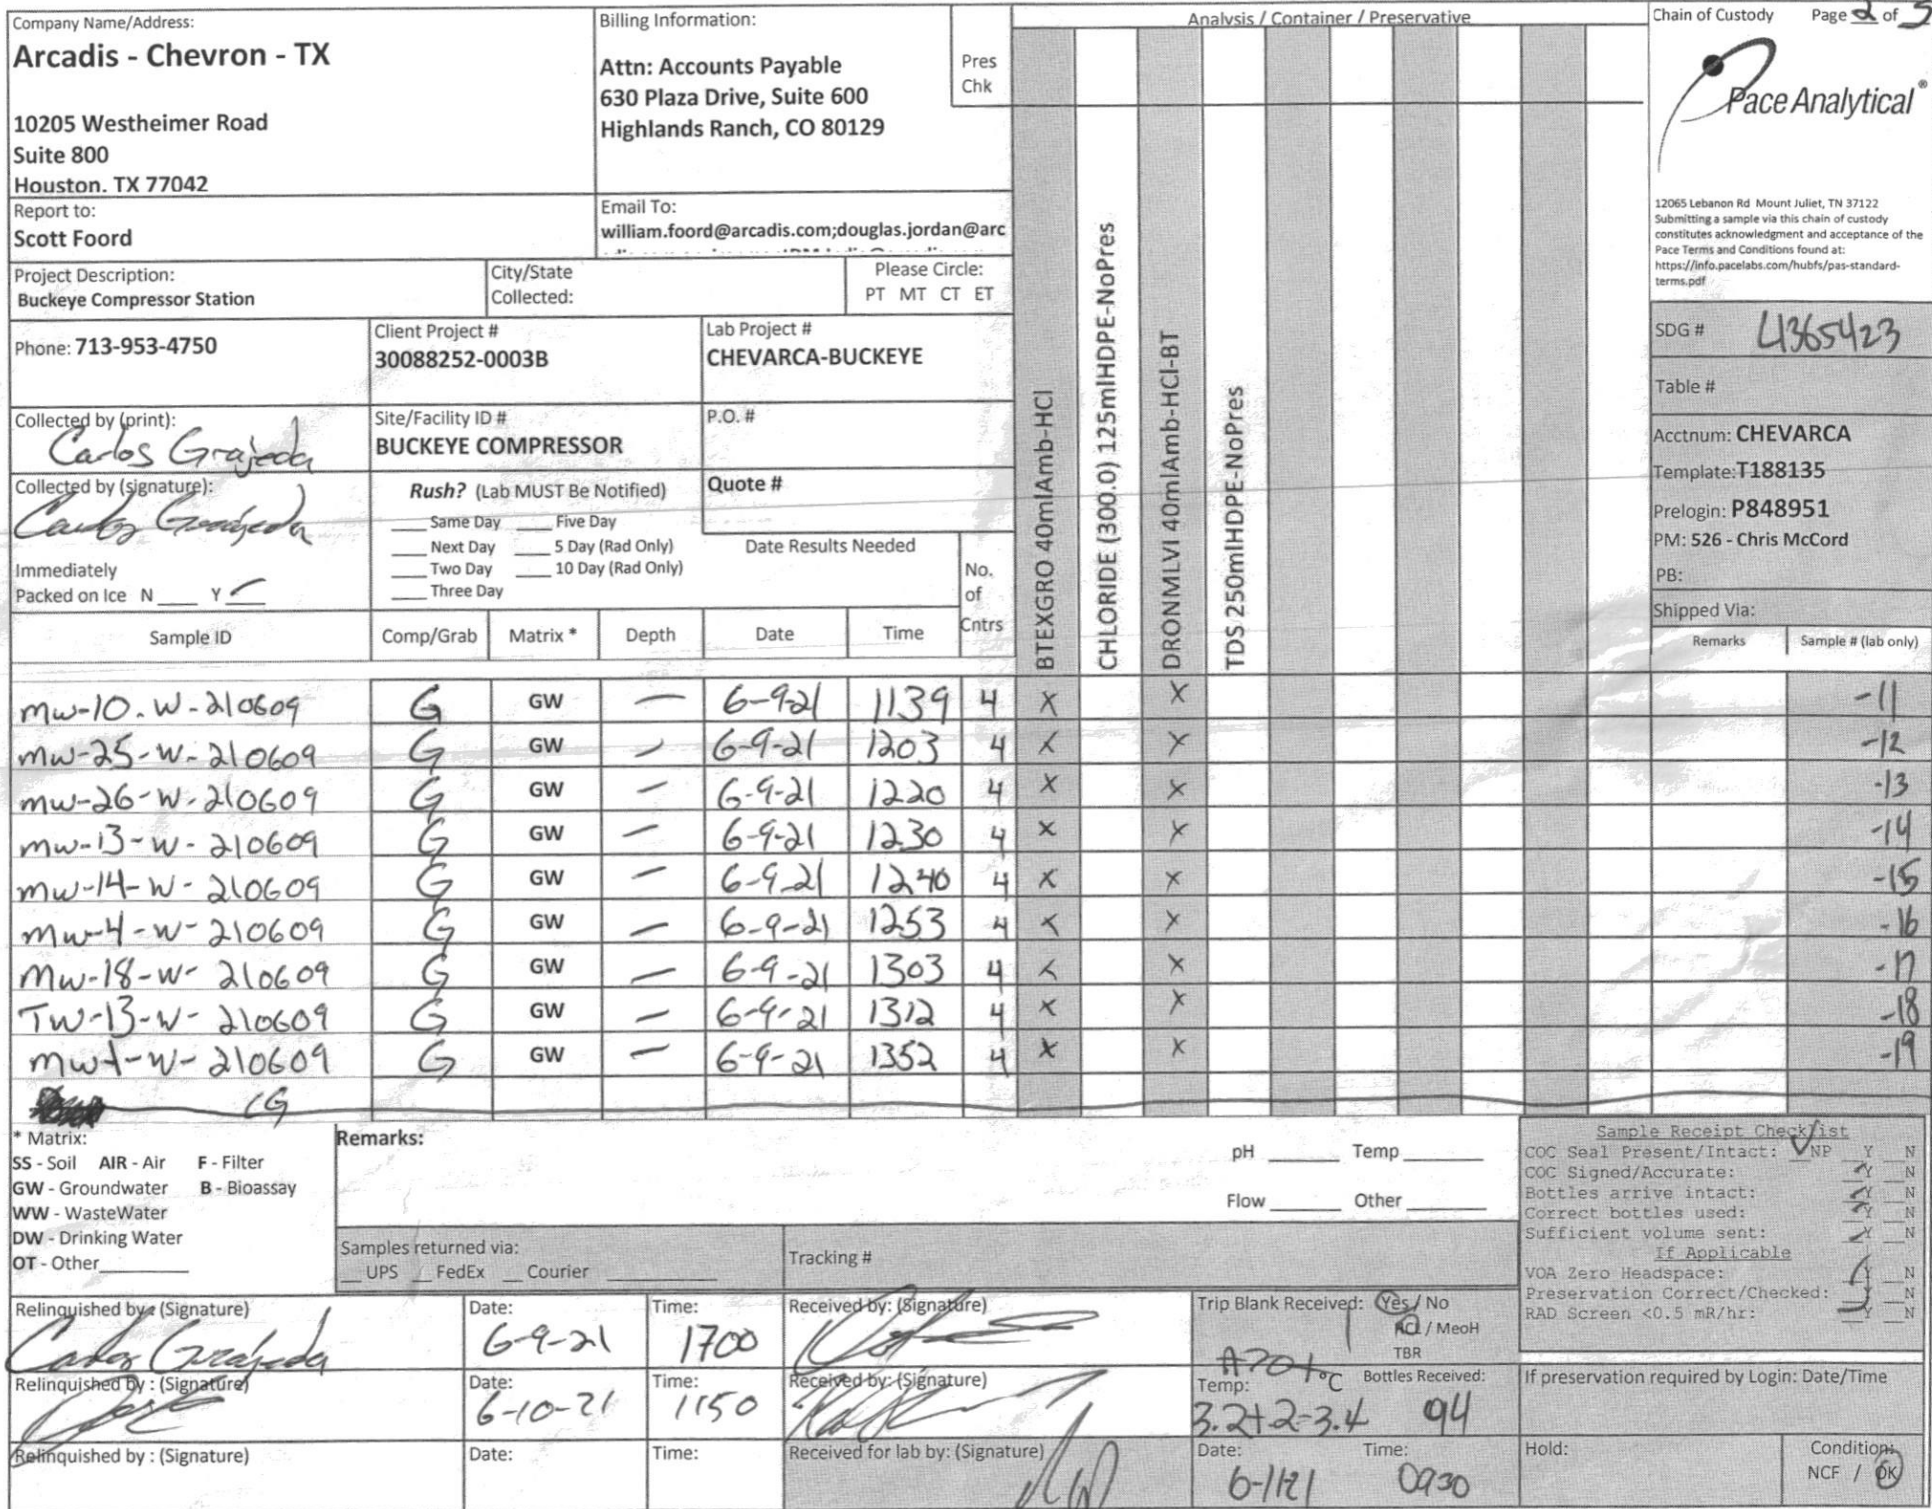 Company Name/Address:
Arcadis - Chevron - TX
10205 Westheimer Road
Suite 800
Houston. TX 77042
Billing Information:
Attn: Accounts Payable
630 Plaza Drive, Suite 600
Highlands Ranch, CO 80129
Pres
Chk
Analysis / Container / Preservative
Chain of Custody Page 2 of 3
Pace Analytical®
12065 Lebanon Rd Mount Juliet, TN 37122
Submitting a sample via this chain of custody
constitutes acknowledgment and acceptance of the
Pace Terms and Conditions found at:
https://info.pacelabs.com/hubfs/pas-standard-
terms.pdf
Report to:
Scott Foord
Email To:
william.foord@arcadis.com;douglas.jordan@arc
Project Description:
Buckeye Compressor Station
City/State
Collected:
Please Circle:
PT MT CT ET
Phone: 713-953-4750
Client Project #
30088252-0003B
Lab Project #
CHEVARCA-BUCKEYE
Collected by (print):
Carlos Grajeda
Site/Facility ID #
BUCKEYE COMPRESSOR
P.O. #
Collected by (signature):
Carlos Grajeda
Rush? (Lab MUST Be Notified)
Same Day Five Day
Next Day 5 Day (Rad Only)
Two Day 10 Day (Rad Only)
Three Day
Quote #
Date Results Needed
No.
of
Cntrs
Immediately
Packed on Ice N Y
BTEXGRO 40mlAmb-HCl
CHLORIDE (300.0) 125mlHDPE-NoPres
DRONMLVI 40mlAmb-HCl-BT
TDS 250mlHDPE-NoPres
SDG # L1365423
Table #
Acctnum: CHEVARCA
Template:T188135
Prelogin: P848951
PM: 526 - Chris McCord
PB:
Shipped Via:
Sample ID Comp/Grab Matrix * Depth Date Time Remarks Sample # (lab only)
mw-10-W-210609 G GW — 6-9-21 1139 4 X X -11
mw-25-W-210609 G GW — 6-9-21 1203 4 X X -12
mw-26-W-210609 G GW — 6-9-21 1220 4 X X -13
mw-13-W-210609 G GW — 6-9-21 1230 4 X X -14
mw-14-W-210609 G GW — 6-9-21 1240 4 X X -15
mw-4-W-210609 G GW — 6-9-21 1253 4 X X -16
mw-18-W-210609 G GW — 6-9-21 1303 4 X X -17
TW-13-W-210609 G GW — 6-9-21 1312 4 X X -18
mw-1-W-210609 G GW — 6-9-21 1352 4 X X -19
CG
* Matrix:
SS - Soil AIR - Air F - Filter
GW - Groundwater B - Bioassay
WW - WasteWater
DW - Drinking Water
OT - Other
Remarks:
pH Temp
Flow Other
Samples returned via:
UPS FedEx Courier
Tracking #
Sample Receipt Checklist
COC Seal Present/Intact: NP Y N
COC Signed/Accurate: Y N
Bottles arrive intact: Y N
Correct bottles used: Y N
Sufficient volume sent: Y N
If Applicable
VOA Zero Headspace: Y N
Preservation Correct/Checked: Y N
RAD Screen <0.5 mR/hr: Y N
Relinquished by : (Signature)
Carlos Grajeda
Date:
6-9-21
Time:
1700
Received by: (Signature)
Trip Blank Received: Yes / No
1
HCL / MeoH
TBR
Relinquished by : (Signature)
Date:
6-10-21
Time:
1150
Received by: (Signature)
Temp: °C
3.2+.2=3.4
Bottles Received:
94
If preservation required by Login: Date/Time
Relinquished by : (Signature)
Date:
Time:
Received for lab by: (Signature)
Date:
6-11-21
Time:
0930
Hold:
Condition:
NCF / OK